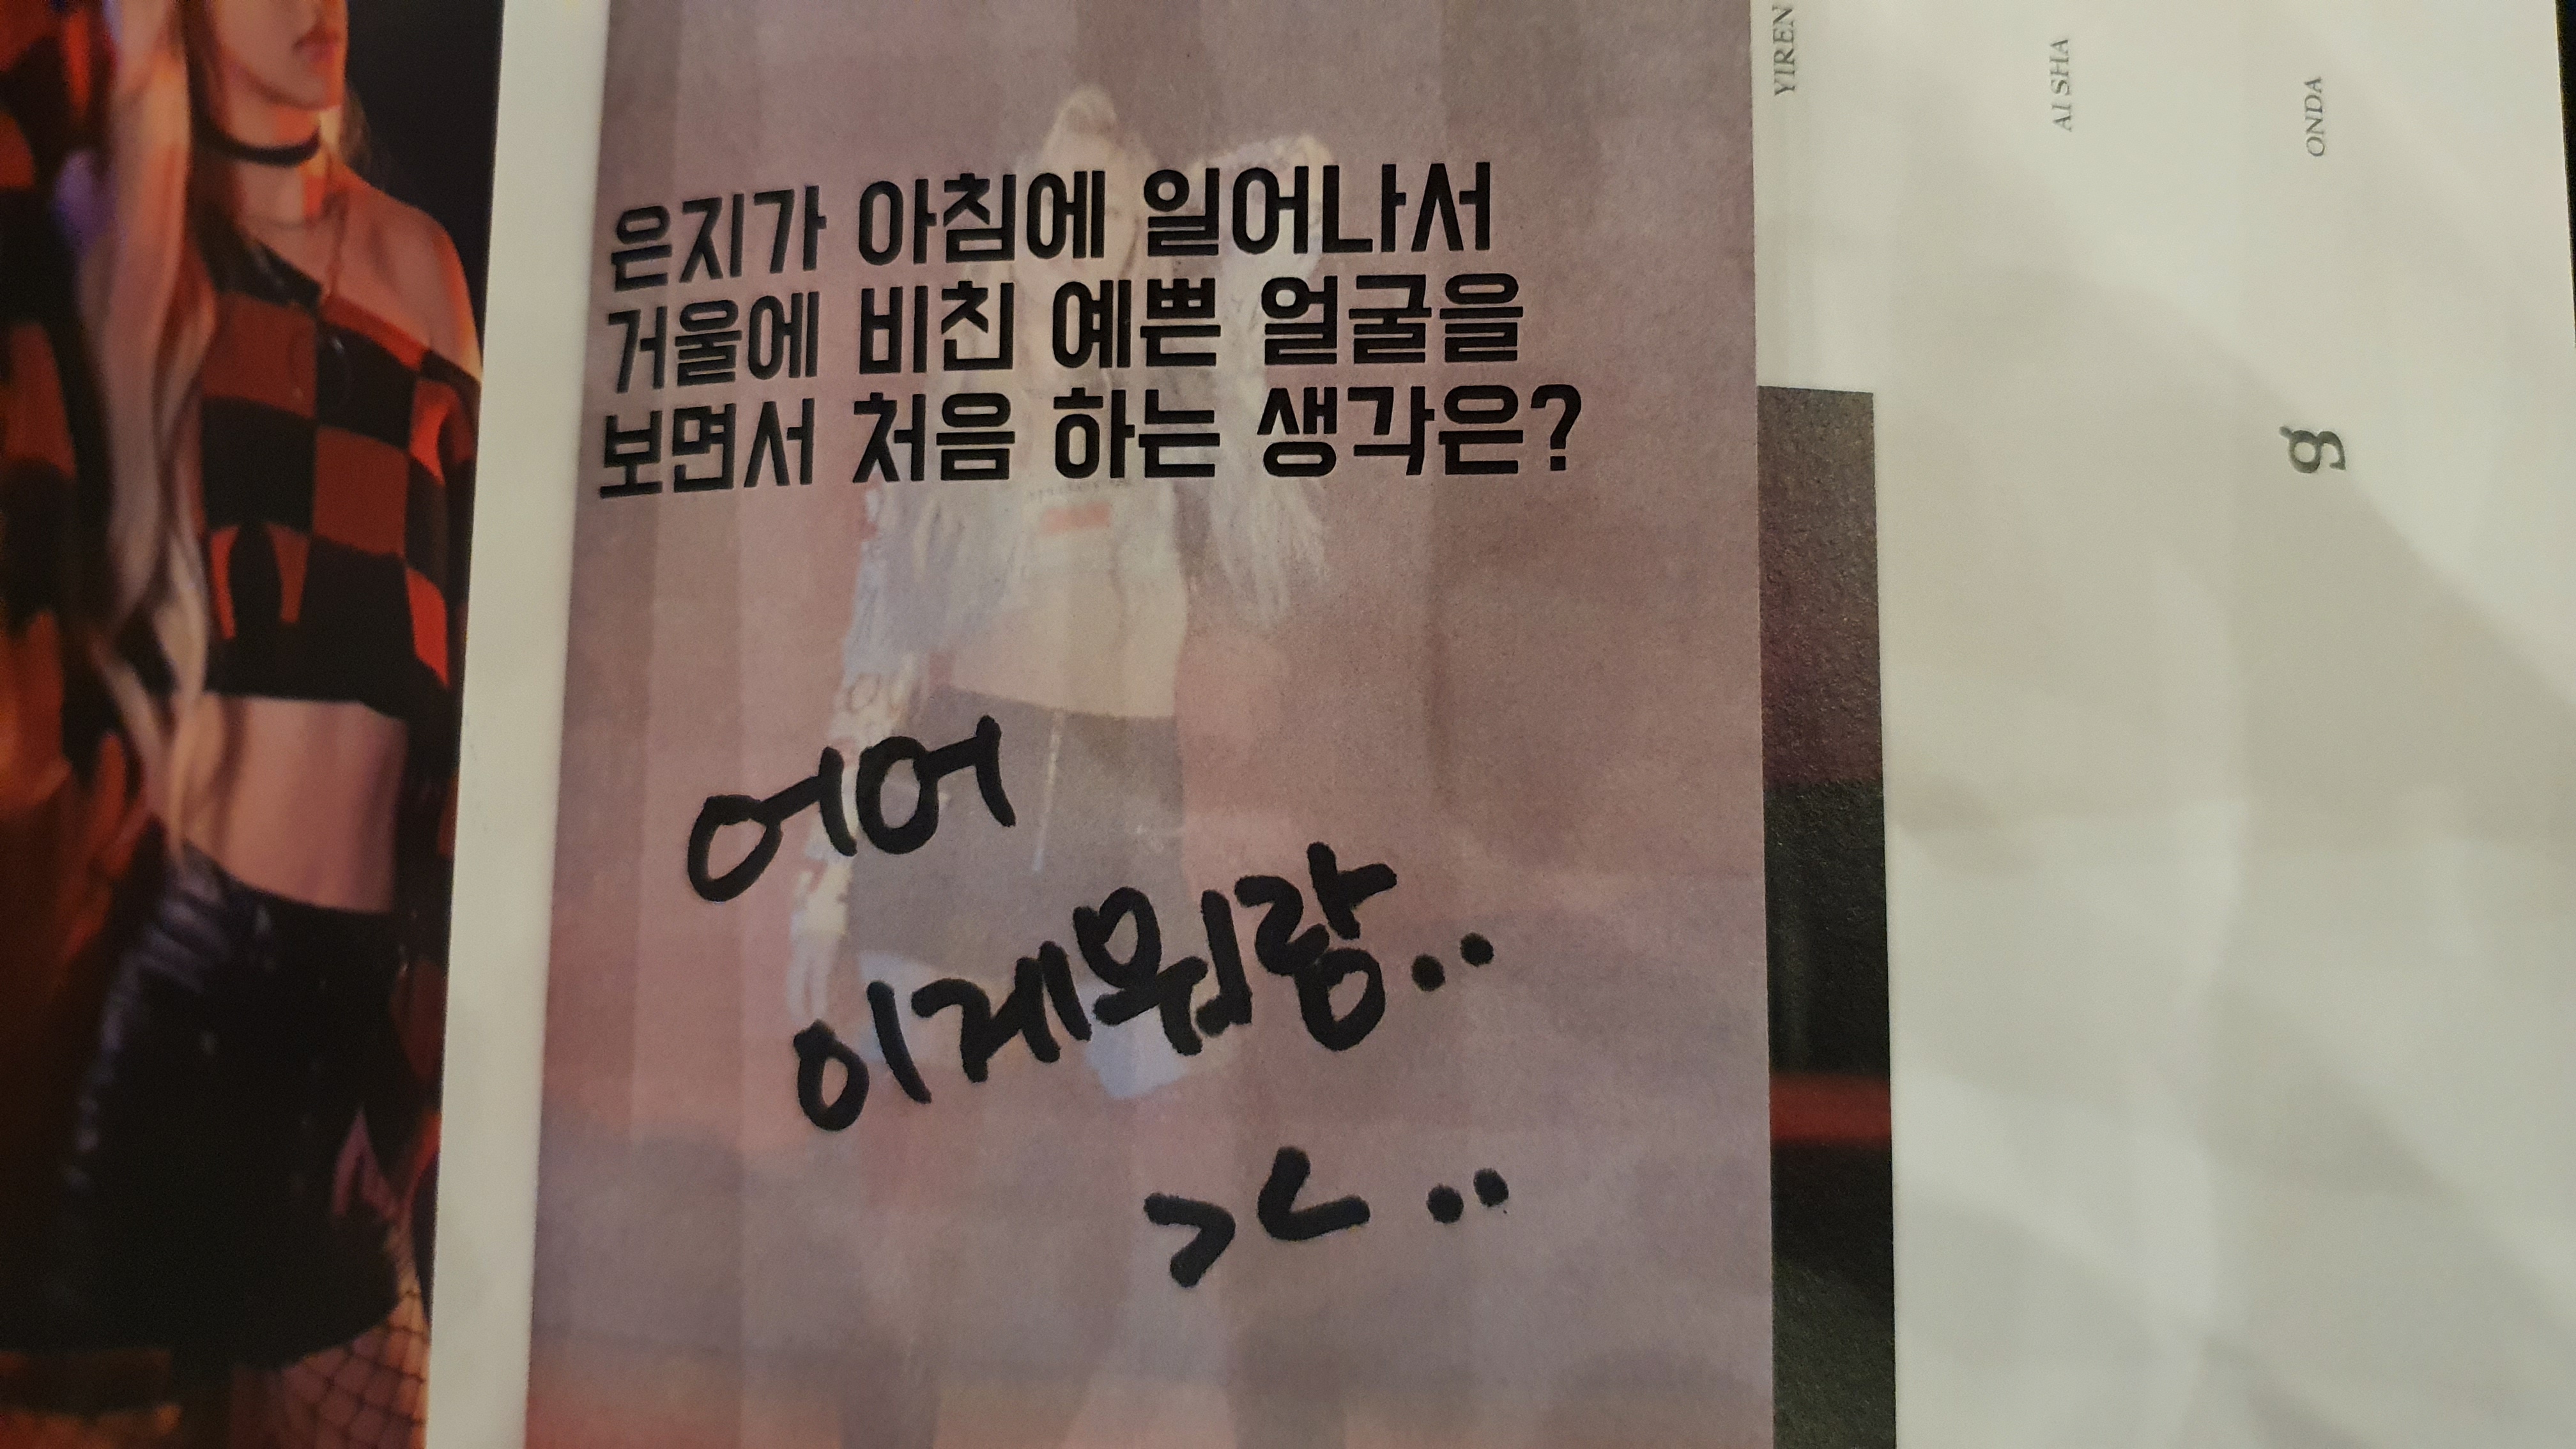 은지가 아침에 일어나서
거울에 비친 예쁜 얼굴을
보면서 처음 하는 생각은?
어어
이게뭐랑..
><..
YIREN
AISHA
ONDA
g